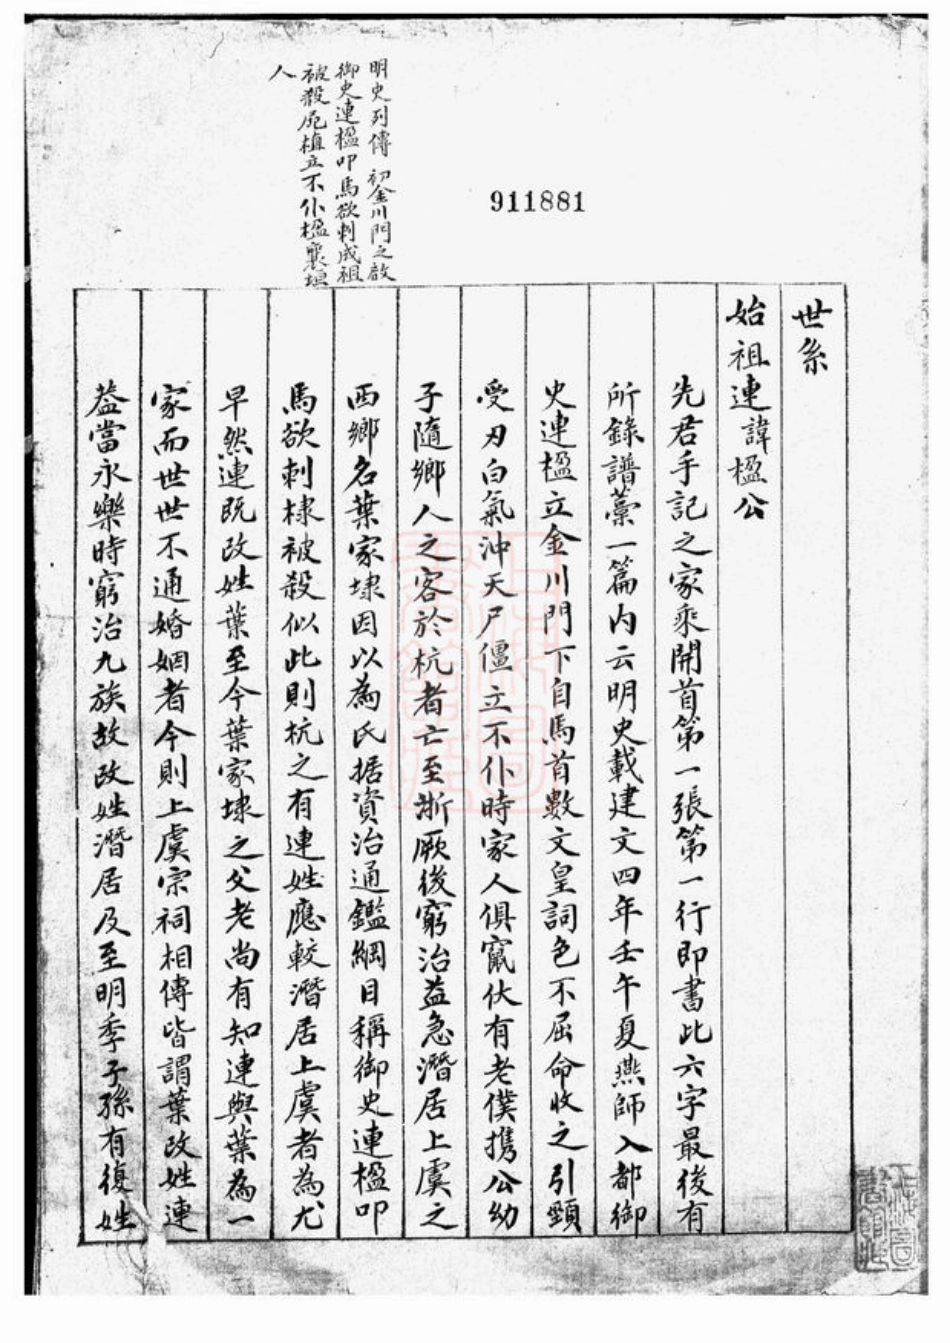 明史列傳 初金川門之啟
御史連楹叩馬欲刺成祖
被殺屍植立不仆楹襄垣
人
911881
世系
始祖連諱楹公
先君手記之家乘開首第一張第一行即書此六字最後有
所錄譜藳一篇内云明史載建文四年壬午夏燕師入都御
史連楹立金川門下自馬首數文皇詞色不屈命收之引頸
受刃白氣沖天尸僵立不仆時家人俱竄伏有老僕携公幼
子隨鄉人之客於杭者亡至浙厥後窮治益急潛居上虞之
西鄉名葉家埭因以為氏据資治通鑑綱目稱御史連楹叩
馬欲刺棣被殺似此則杭之有連姓應較潛居上虞者為尤
早然連既改姓葉至今葉家埭之父老尚有知連與葉為一
家而世世不通婚姻者今則上虞宗祠相傳皆謂葉改姓連
葢當永樂時窮治九族故改姓潛居及至明季子孫有復姓